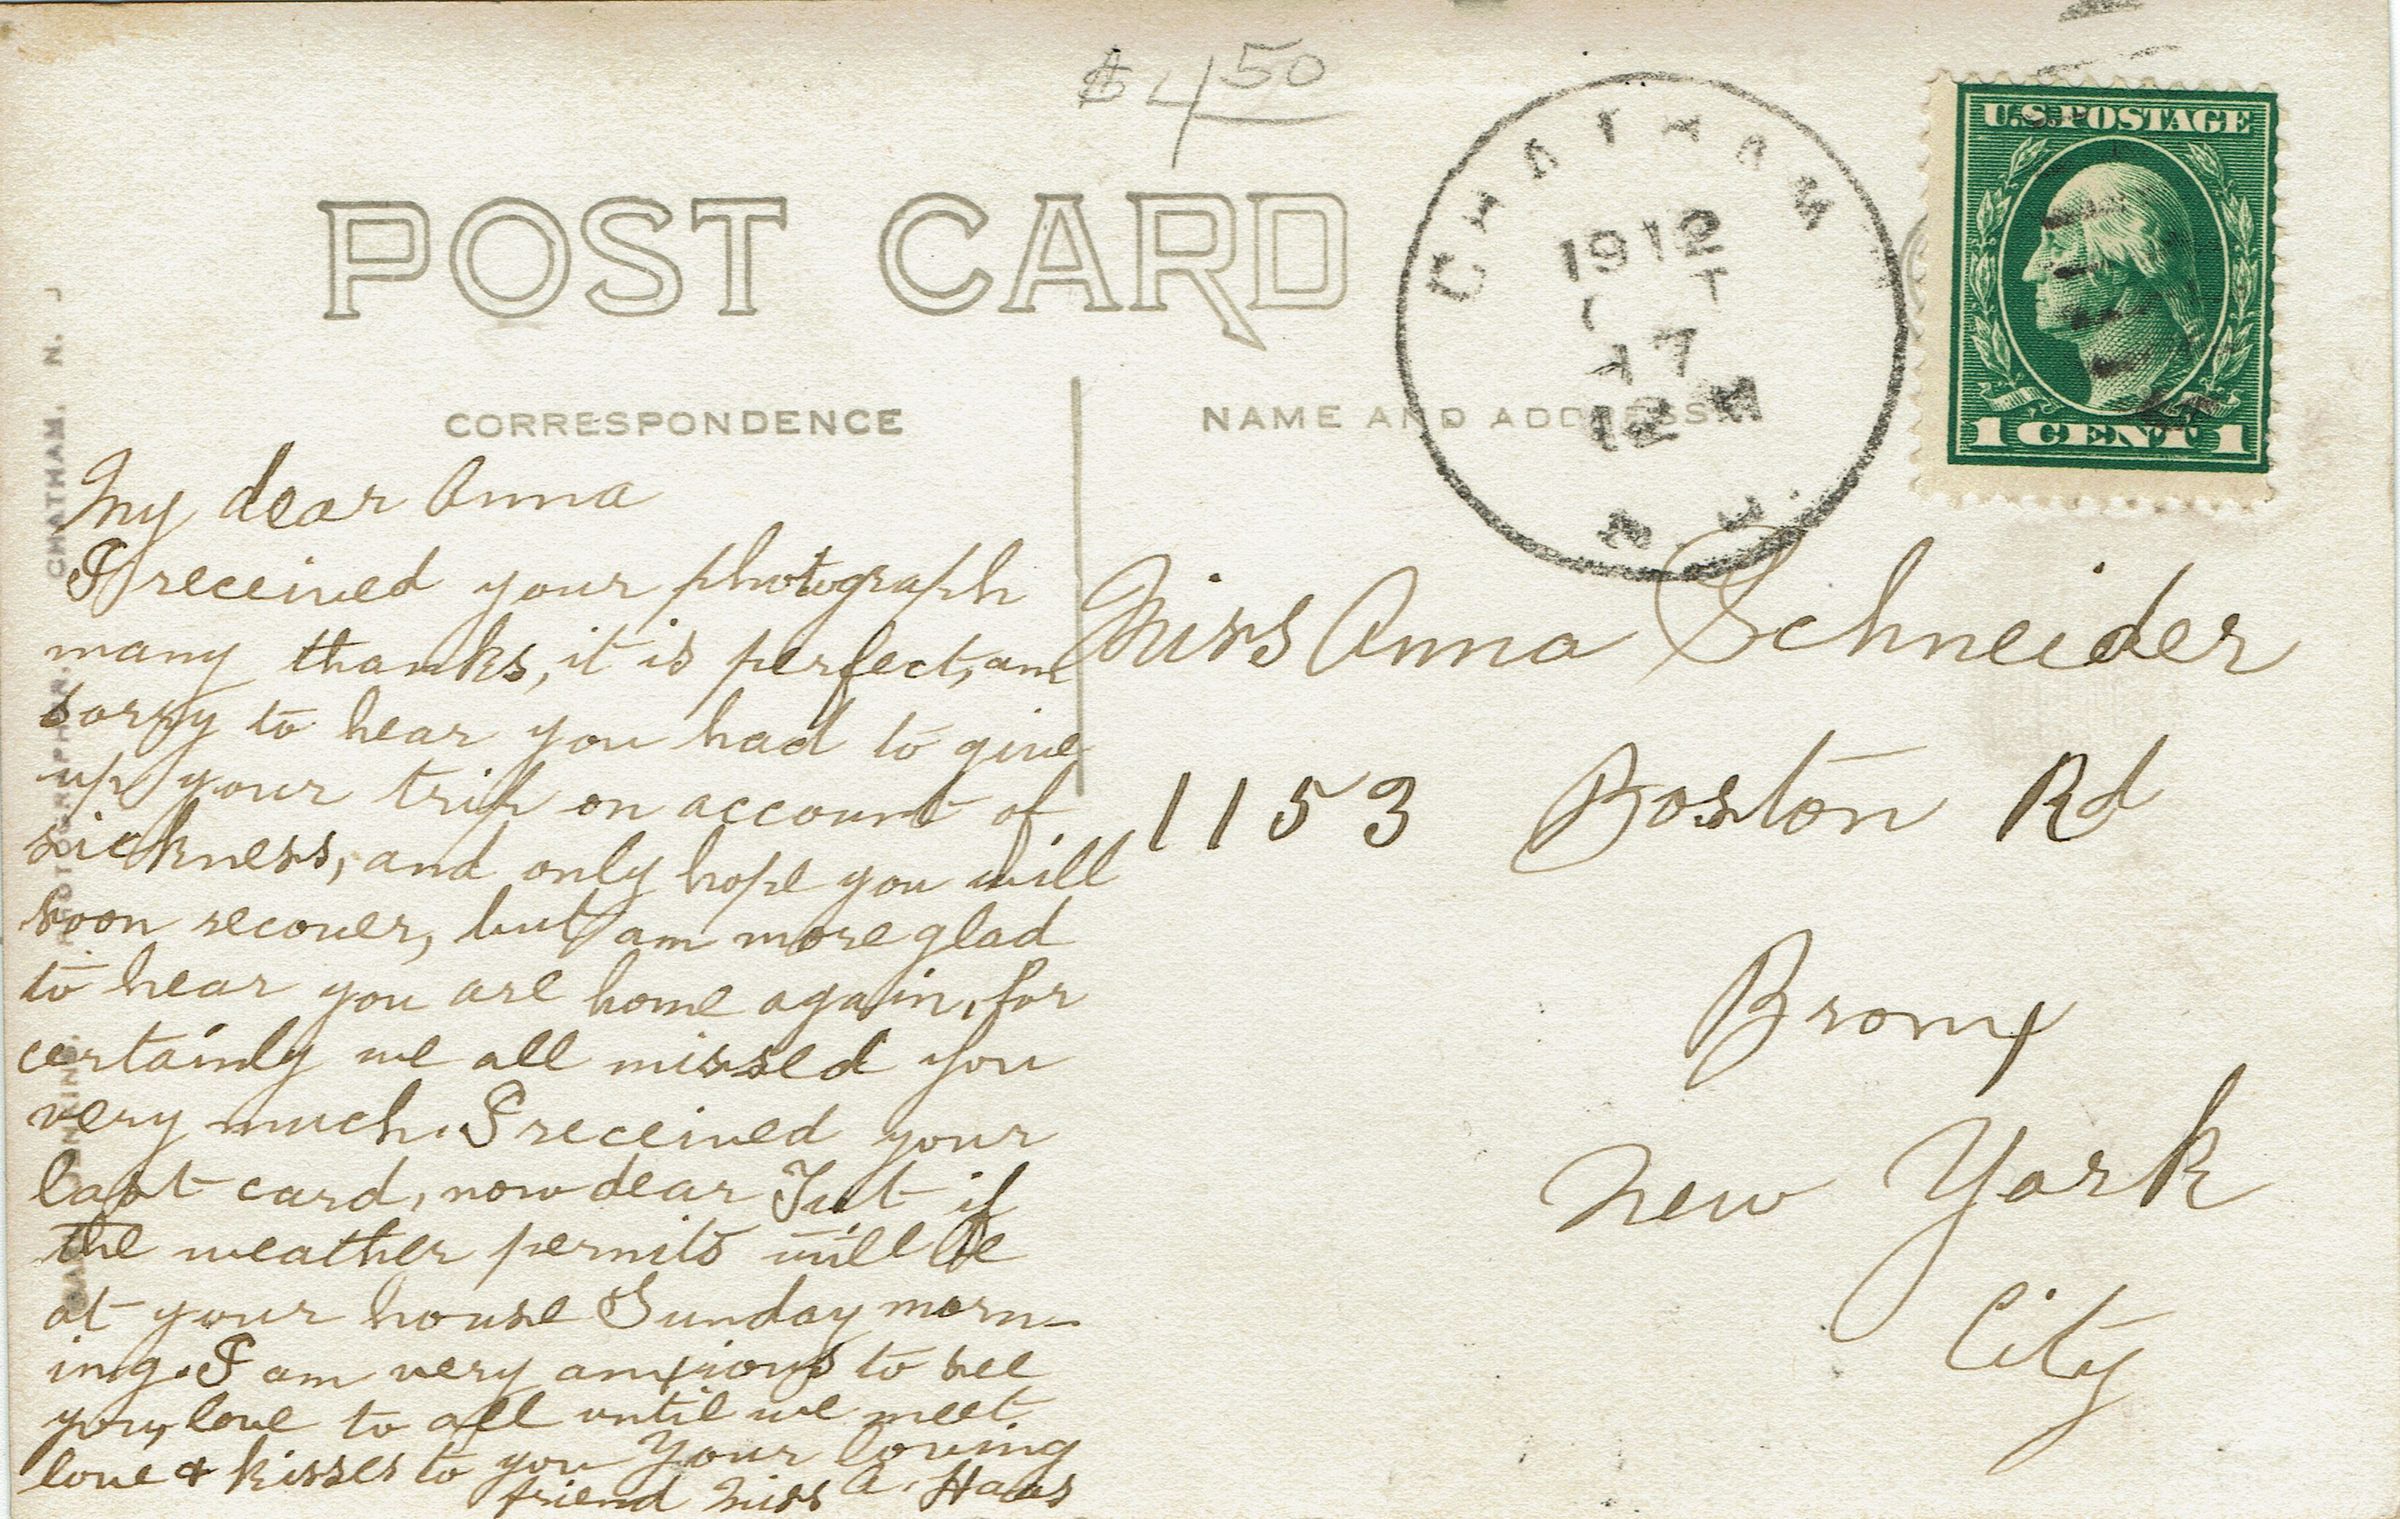 $4 50
POST CARD
CHATHAM
1912
17
12 M
N.J.
U.S. POSTAGE
1 CENT 1
CORRESPONDENCE
NAME AND ADDRESS
My dear Anna
I received your photograph
many thanks, it is perfect, am
sorry to hear you had to give
up your trip on account of
sickness, and only hope you will
soon recover, but am more glad
to hear you are home again, for
certainly we all missed you
very much. I received your
last card, now dear if
the weather permits will be
at your house Sunday morn-
ing. I am very anxious to see
you, love to all until we meet
love & kisses to you Your loving
friend Miss A. Haas
Miss Anna Schneider
1153 Boston Rd
Bronx
New York
City
PHOTOGRAPHER. CHATHAM. N. J